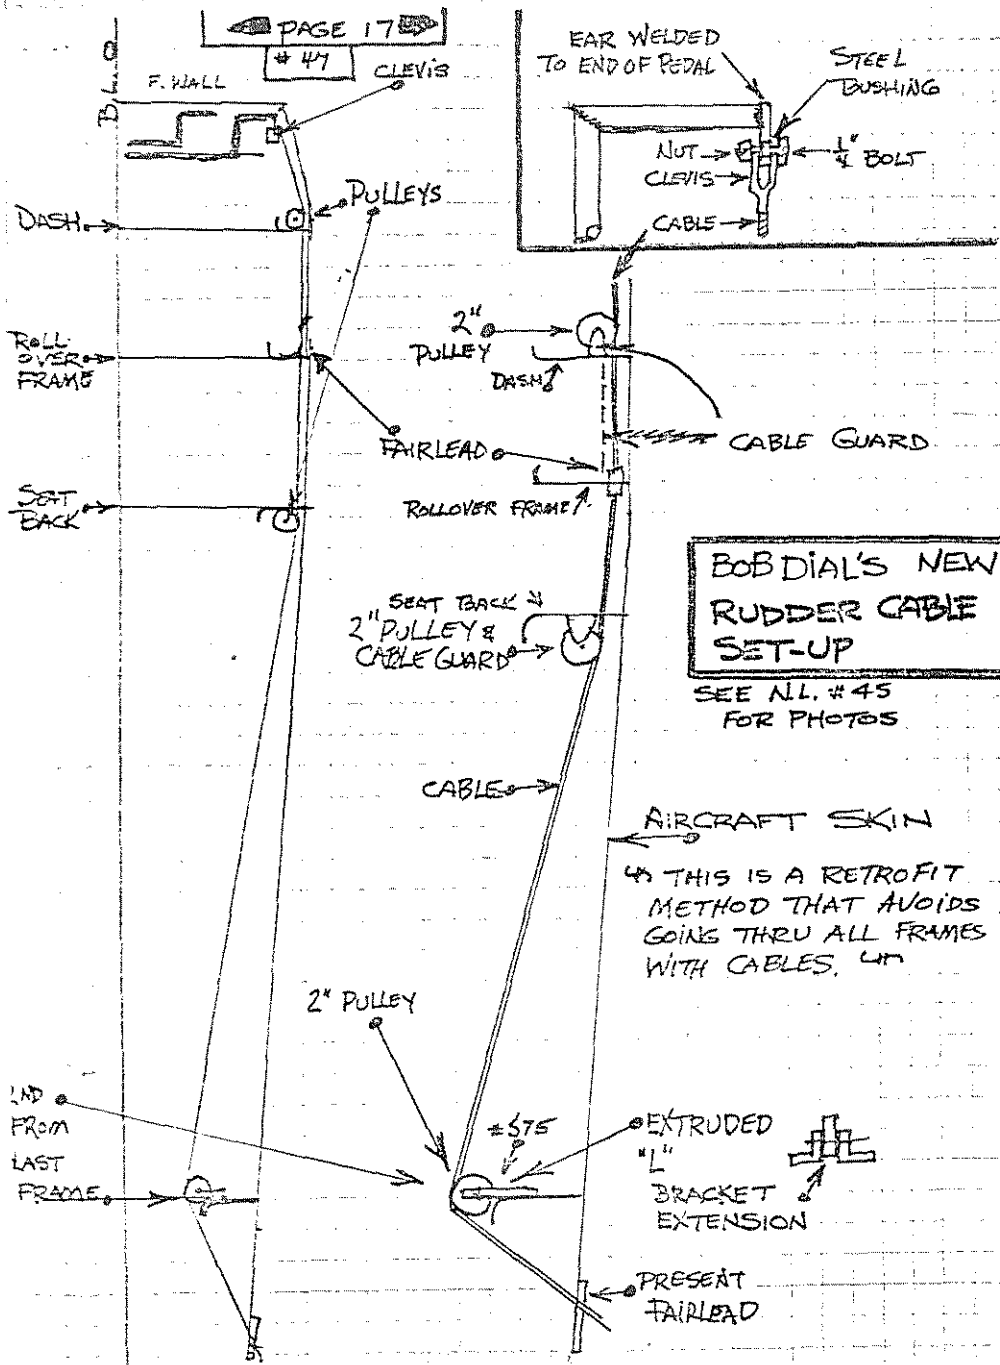 PAGE 17
# 47
B L O
F. WALL
CLEVIS
PULLEYS
DASH
ROLL
OVER
FRAME
FAIRLEAD
SEAT
BACK
EAR WELDED
TO END OF PEDAL
STEEL
BUSHING
NUT
1/4" BOLT
CLEVIS
CABLE
2"
PULLEY
DASH
CABLE GUARD
ROLLOVER FRAME
SEAT BACK
2" PULLEY &
CABLE GUARD
BOB DIAL'S NEW
RUDDER CABLE
SET-UP
SEE N.L. #45
FOR PHOTOS
CABLE
AIRCRAFT SKIN
THIS IS A RETROFIT
METHOD THAT AVOIDS
GOING THRU ALL FRAMES
WITH CABLES.
2" PULLEY
2ND
FROM
LAST
FRAME
EXTRUDED
"L"
BRACKET
EXTENSION
PRESENT
FAIRLEAD